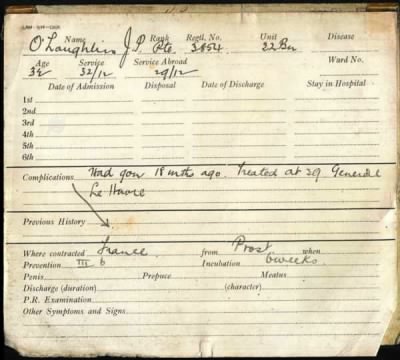 Name Rank Regtl. No. Unit Disease
O'Loughlin J.P. Pte. 3854 22 Bn
Age Service Service Abroad Ward No.
32/12 29/12
Date of Admission Disposal Date of Discharge Stay in Hospital
1st
2nd
3rd
4th
5th
6th
Complications Had gon 18 mths ago. Treated at 39 General
Le Havre
Previous History
Where contracted France from Prost when
Prevention III 6 Incubation 6weeks.
Penis Prepuce Meatus
Discharge (duration) (character)
P.R. Examination
Other Symptoms and Signs